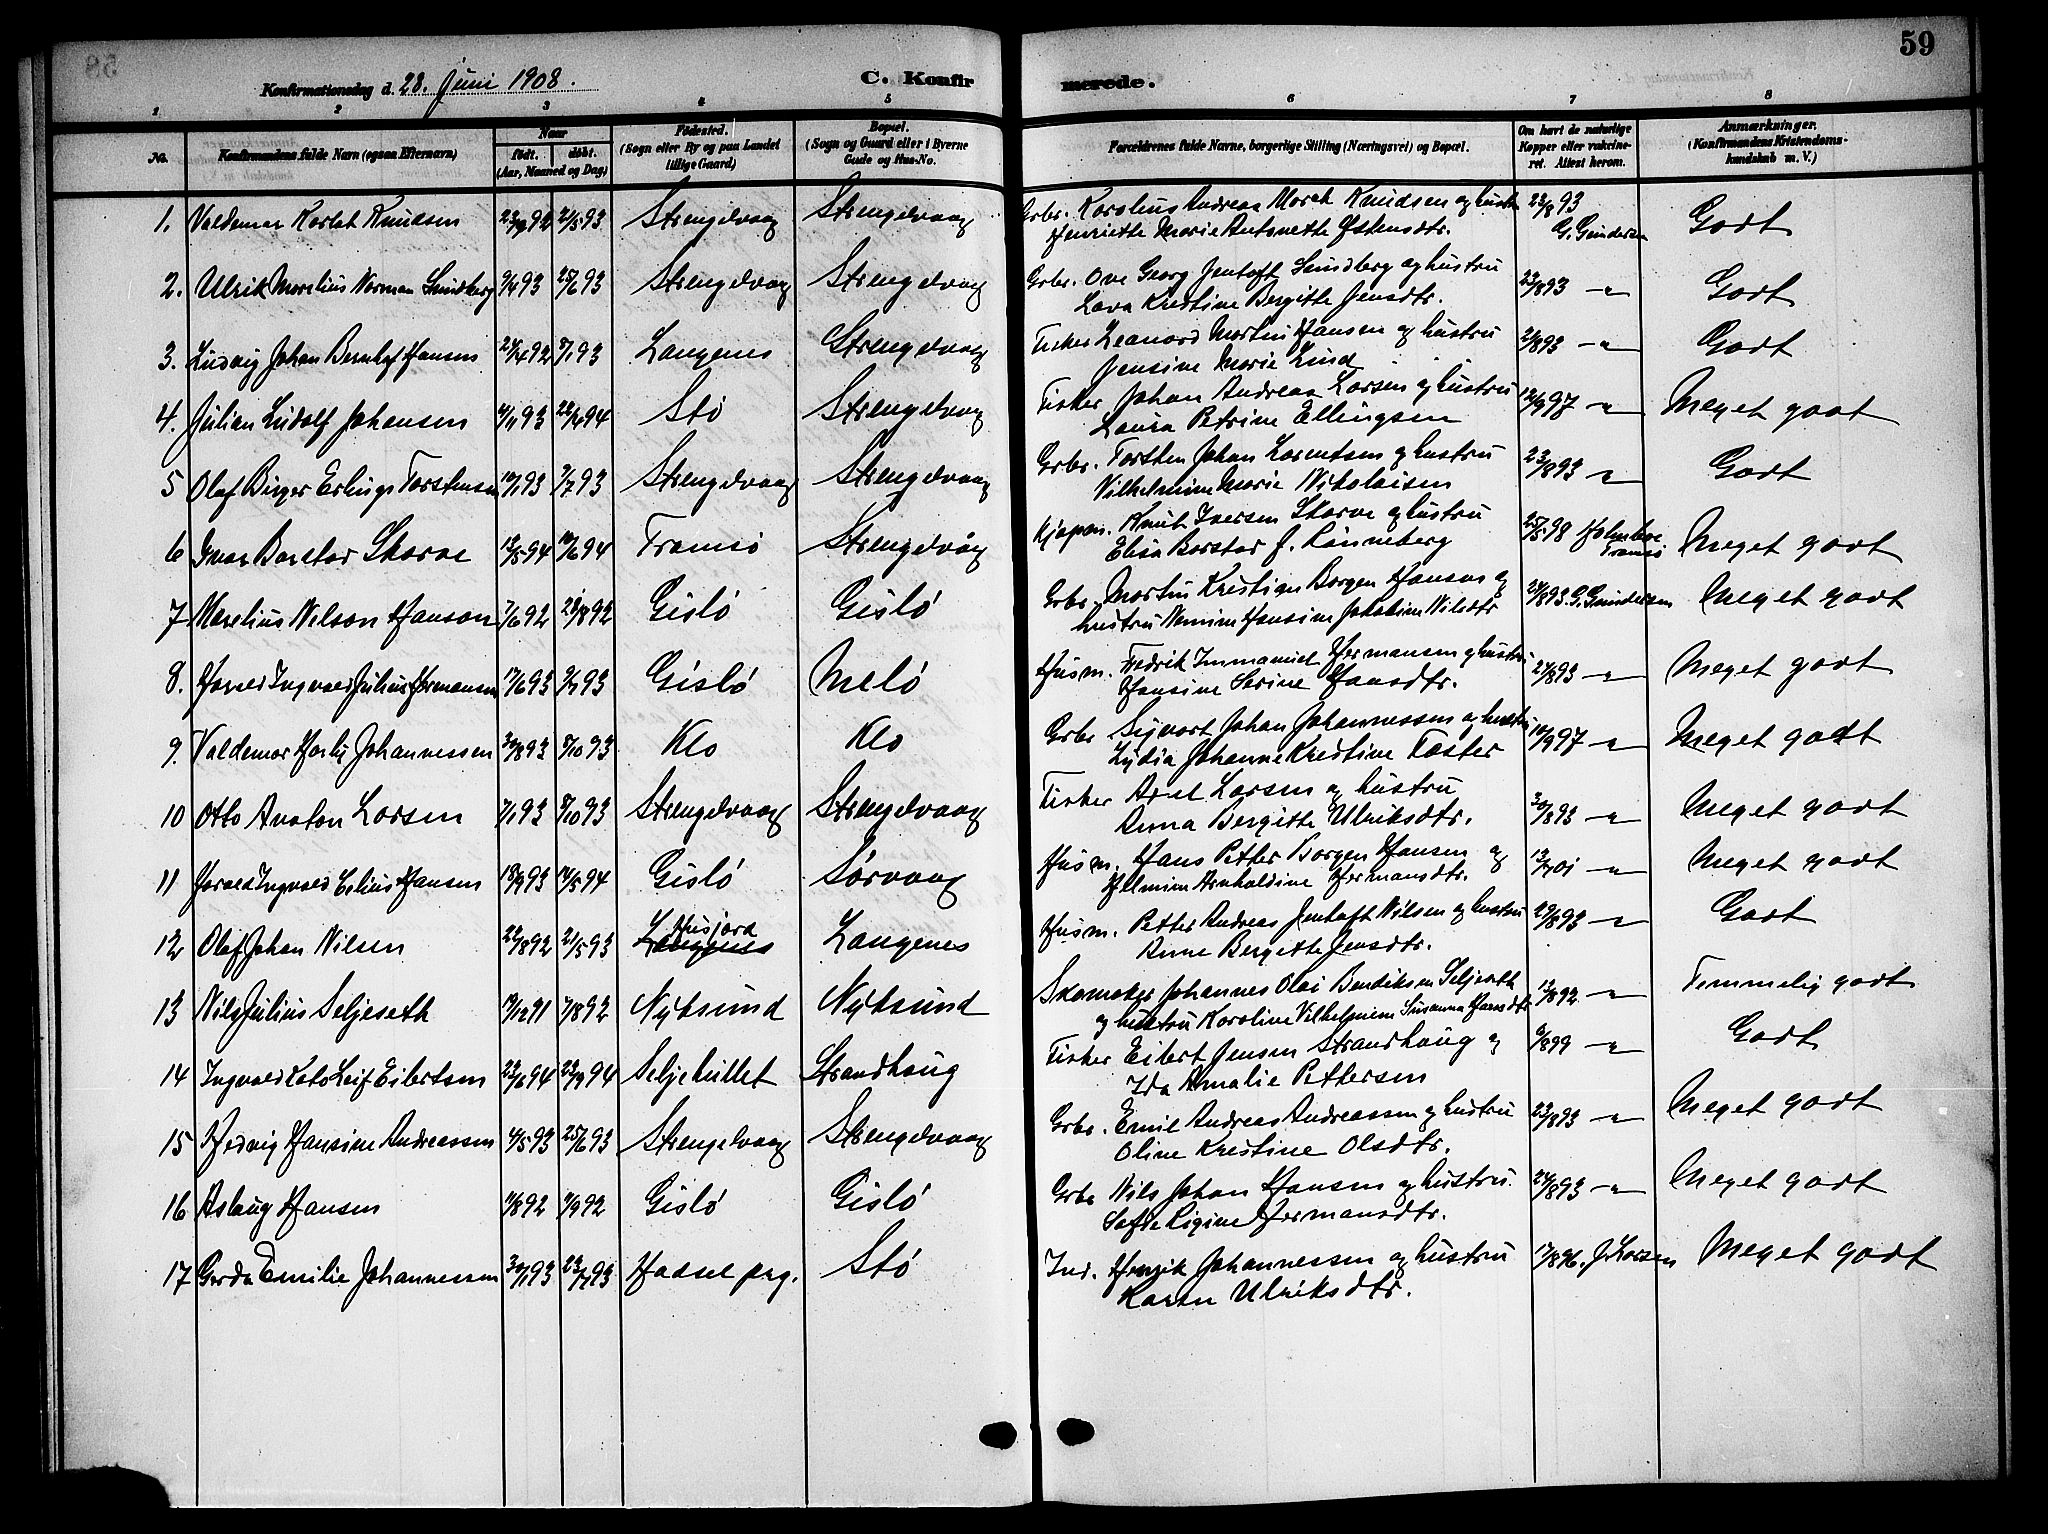 59
Konfirmationsdag d. 28. Juni 1908.
C. Konfirmerede.
1 2 3 4 5 6 7 8
No.
Konfirmandens fulde Navn (ogsaa Efternavn)
Naar
født. døbt.
(Aar, Maaned og Dag)
Fødested.
(Sogn eller By og paa Landet
tillige Gaard)
Bopæl.
(Sogn og Gaard eller i Byerne
Gade og Hus-No.
Forældrenes fulde Navne, borgerlige Stilling (Næringsvei) og Bopæl.
Om havt de naturlige
Kopper eller vakcine-
ret. Attest herom.
Anmærkninger.
(Konfirmandens Kristendoms-
kundskab m. V.)
1. Valdemar Knudsen 21/5 93 Strengelvaag Strengelvaag Grbr. Karolius Andreas Knudsen og hustru 23/8 93 Godt
Henriette Marie Antonette Østensdtr. G. Gundersen
2. Ulrik Marelius Norman Lundberg 9/4 93 25/6 93 Strengelvaag Strengelvaag Grbr. Ove Georg Jentoft Lundberg og hustru 23/8 93 -"- Godt
Lava Kristine Bergitte Jensdtr.
3. Ludvig Johan Bernhof Hansen 24/4 92 8/1 93 Langenes Strengelvaag Fisker Leonard Martin Hansen og hustru 21/8 93 -"- Godt
Jensine Marie Lind
4. Julian Ludolf Johansen 4/11 93 22/4 94 Stø Strengelvaag Fisker Johan Andreas Larsen og hustru 12/9 97 -"- Meget godt
Laura Petrine Ellingsen
5 Olaf Birger Erling Torstensen 19/1 93 9/7 93 Strengelvaag Strengelvaag Grbr. Torsten Johan Lorentsen og hustru 23/8 93 -"- Godt
Vilhelmine Marie Nikolaisen
6 Ivar Barstar Skarve 12/5 94 10/6 94 Tromsø Strengelvåg Kjøpm. Knut Iversen Skarve og hustru 25/5 98 Holmboe Meget godt
Elisa Barstar f. Rønneberg Tromsø
7 Marelius Nelson Hanson 7/6 92 28/8 92 Gislø Gislø Grbr. Martin Kristian Borgen Hansen og 24/8 93. G. Gundersen Meget godt
hustru Hansine Jakobine Nilsdtr
8. Harald Ingvald Julius Hermansen 17/6 93 9/7 93 Gislø Melø Husm. Fedrik Immanuel Hermansen og hustru 24/8 93 -"- Meget godt
Hansine Serine Hansdtr.
9. Valdemar Harly Johannessen 30/8 93 8/10 93 Klo Klo Grbr Sigvart Johan Johannessen og hustru 10/9 97 -"- Meget godt
Lydia Johanne Kristine Foster
10 Otto Anton Larsen 7/1 93 8/10 93 Strengelvaag Strengelvaag Fisker Axel Larsen og hustru 30/8 93 -"- Meget godt
Anna Bergitte Ulriksdtr.
11 Harald Ingvald Edius Hansen 18/9 93 14/5 94 Gislø Sørvaag Husm. Hans Petter Borgen Hansen og -"- Meget godt
Helmine Arnholdine Hermansdtr.
12 Olaf Johan Nilsen 22/8 92 21/5 93 Langenes Husjord Langenes Husm. Petter Andreas Jentoft Nilsen og hustru 29/8 93 -"- Godt
Anne Bergitte Jensdtr.
13 Nils Julius Seljeseth 19/12 91 7/8 92 Nyksund Nyksund Skomaker Johannes Olai Bendiksen Seljeseth 12/8 92 -"- Temmelig godt
og hustru Karoline Vilhelmine Susanna Hansdtr
14 Ingvald Kato Leif Eilertsen 22/6 94 23/9 94 Seljehullet Strandhaug Fisker Eilert Jensen Strandhaug og 6/8 99 -"- Godt
Ida Amalie Pettersen
15 Hedvig Hansine Andreassen 4/5 93 25/6 93 Strengelvaag Strengelvaag Grbr. Emil Andreas Andreassen og hustru 23/8 93 -"- Meget godt
Oline Kristine Olsdtr.
16 Aslaug Hansen 1/8 92 1/9 92 Gislø Gislø Grbr Nils Johan Hansen og hustru. 24/8 93 -"- Meget godt
Sofie Rigine Hermansdtr.
17 Gerda Emilie Johannessen 30/1 93 23/7 93 Hadsel prg. Stø Ind. Henrik Johannessen og hustru 17/8 96. J. Larsen Meget godt
Karen Ulriksdtr.